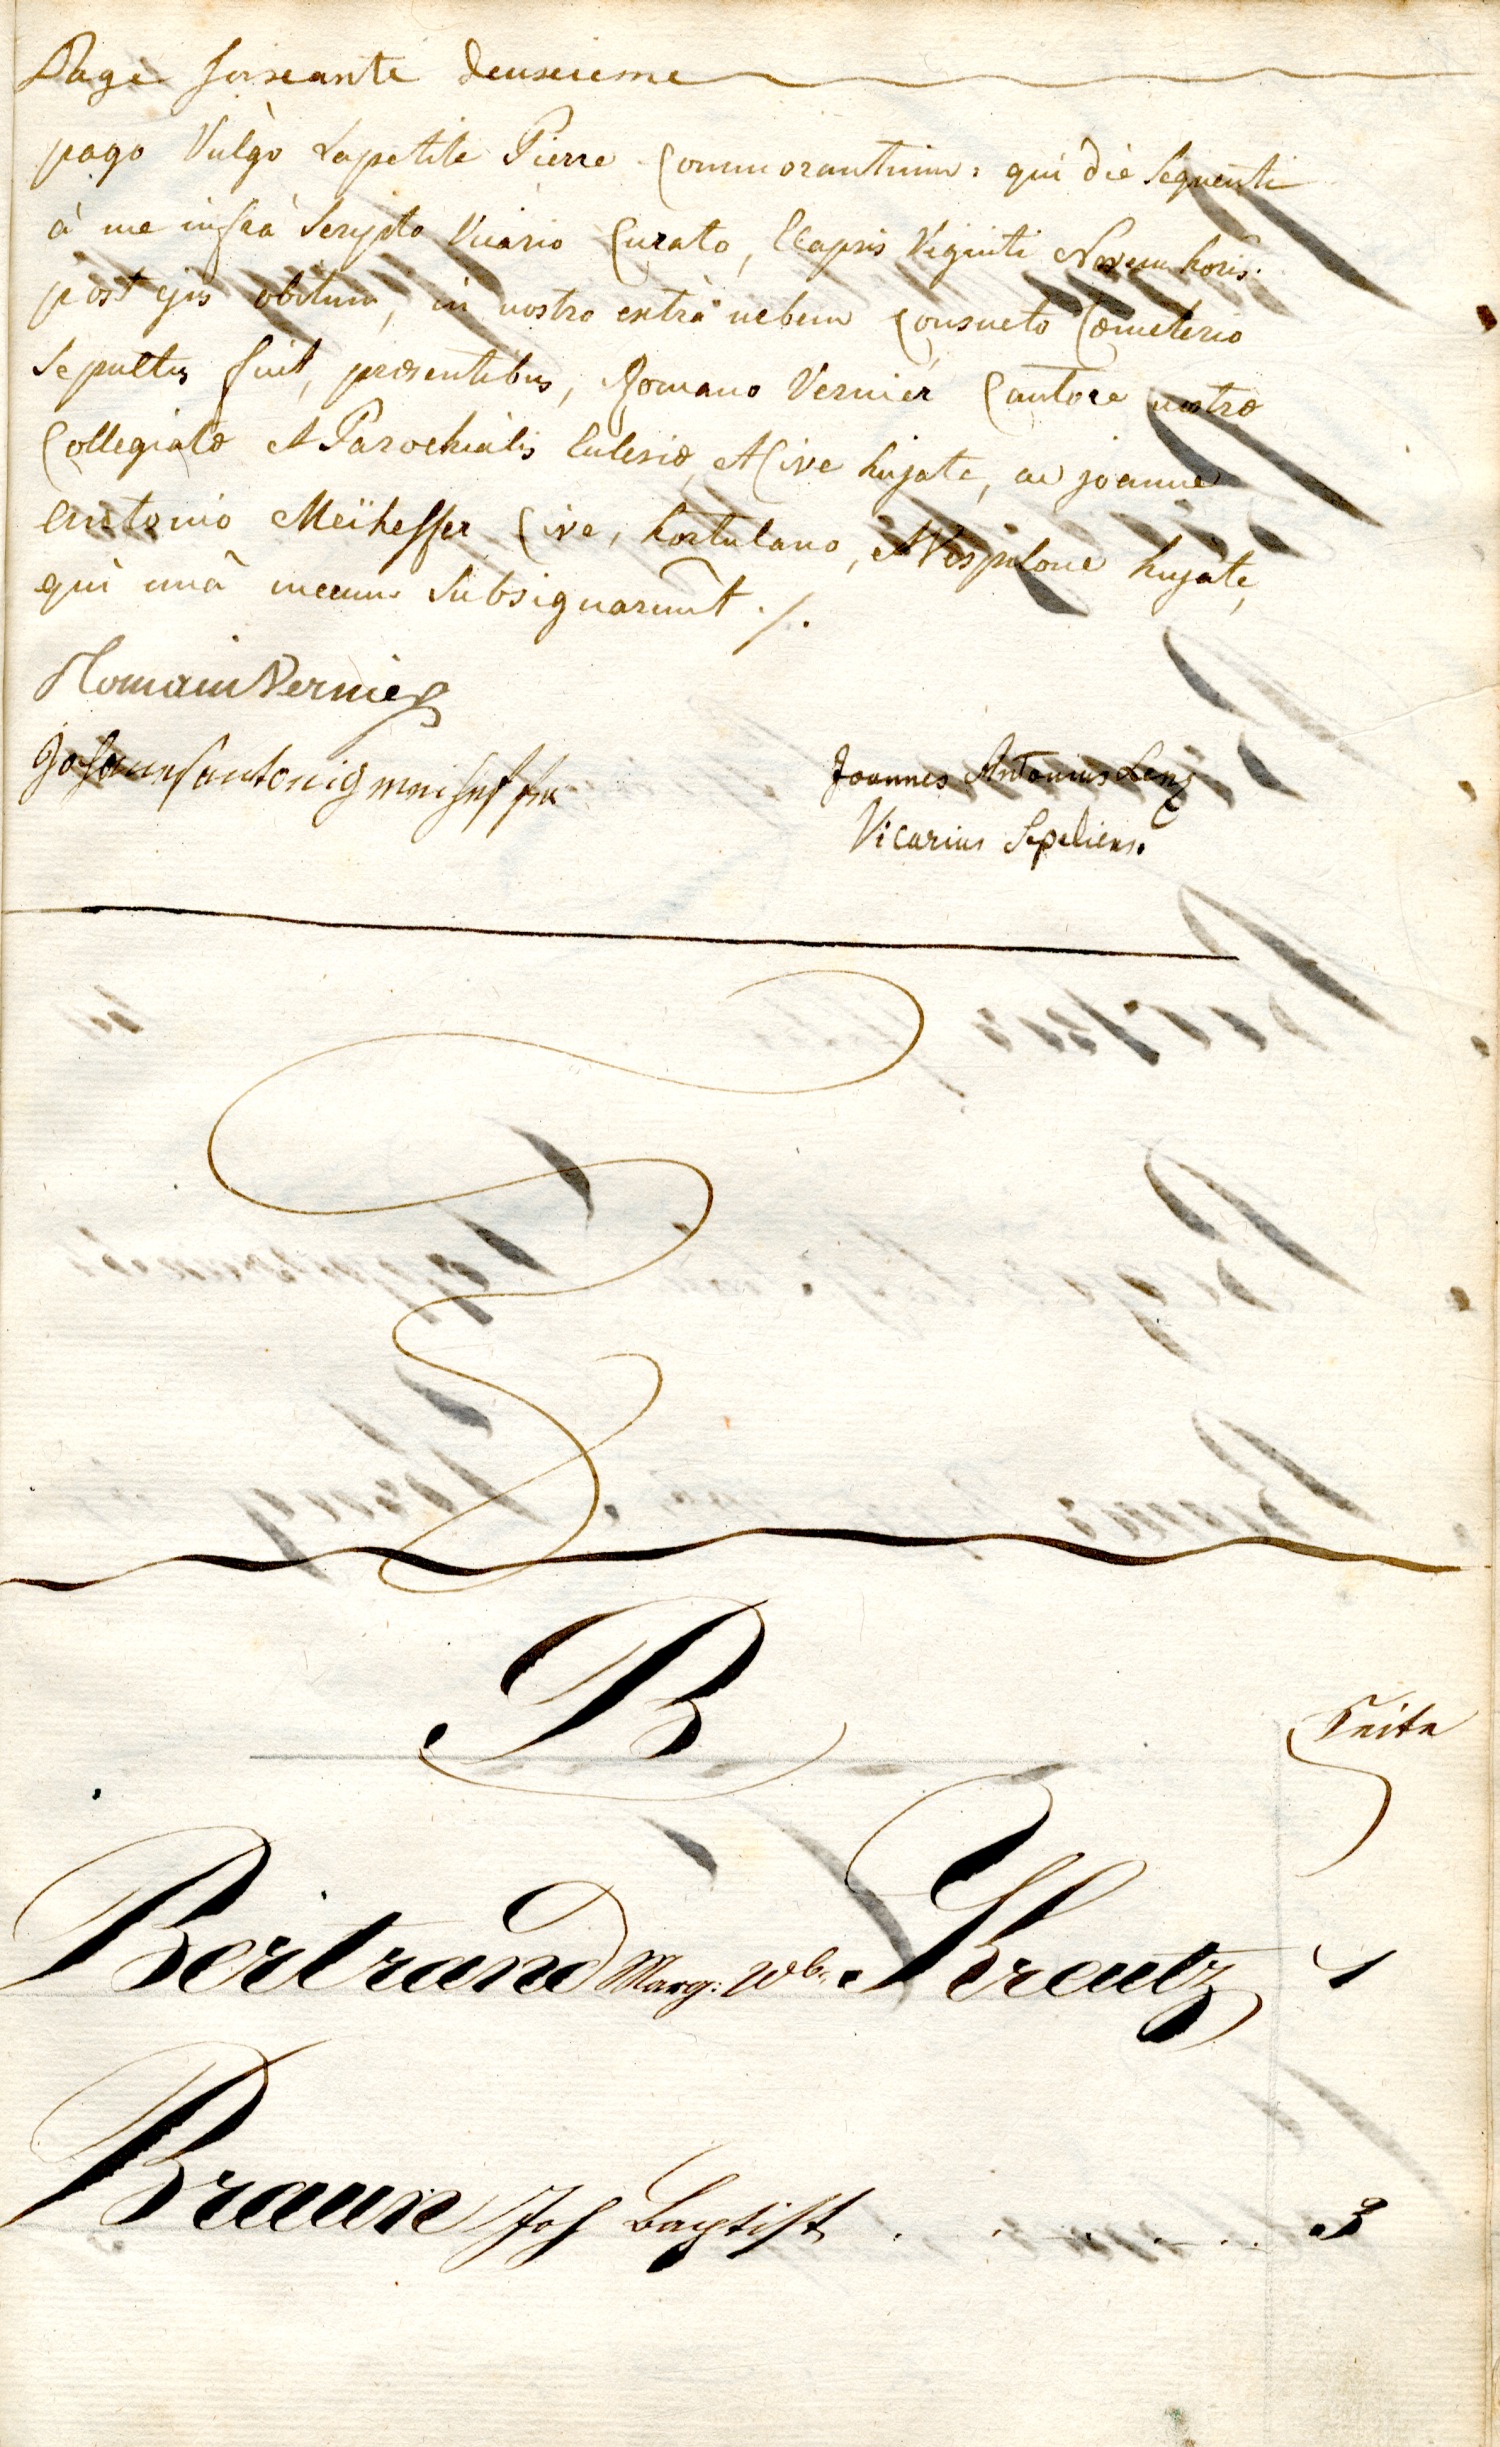 Page soixante deuxieme
pago Vulgò Lapetite Pierre Commorantium: qui die Sequenti
à me infrà Scripto Vicario Curato, Elapsis Viginti Novem horis
post ejus obitum, in nostro extrà urbem Consueto Cœmeterio
Sepultus fuit, præsentibus, Romano Vernier Cantore nostræ
Collegiatæ et Parochialis Eclesiæ, et Cive hujate, ac joanne
Antonio Meïheffer Cive, hortulano, et Vespilone hujate,
qui unà mecum Subsignarunt ./.
Romain Vernier
Johannes antonig meiheffer
Joannes Antonius Lenz
Vicarius Sepeliens.
B
Seite
Bertrand Marg: Wb. Kreutz 1
Braun Joh Baptist . . . . . . 3